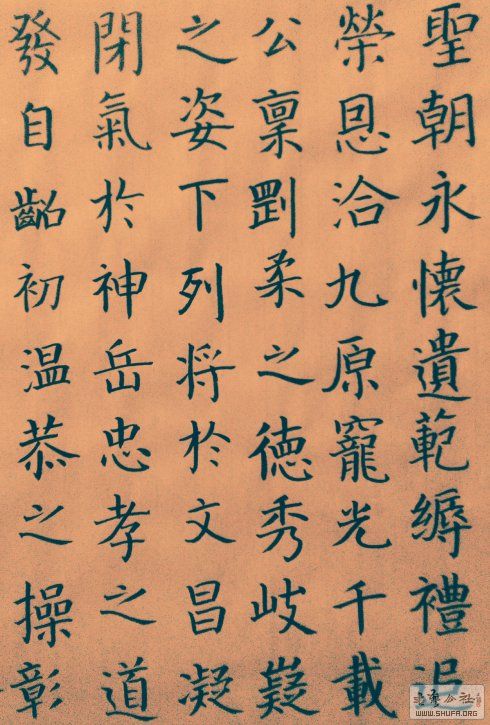 聖朝永懷遺範縟禮追
榮恩洽九原寵光千載
公稟剛柔之德秀岐嶷
之姿下列将於文昌凝
閉氣於神岳忠孝之道
發自齠初温恭之操彰
公社
WWW.SHUFA.ORG